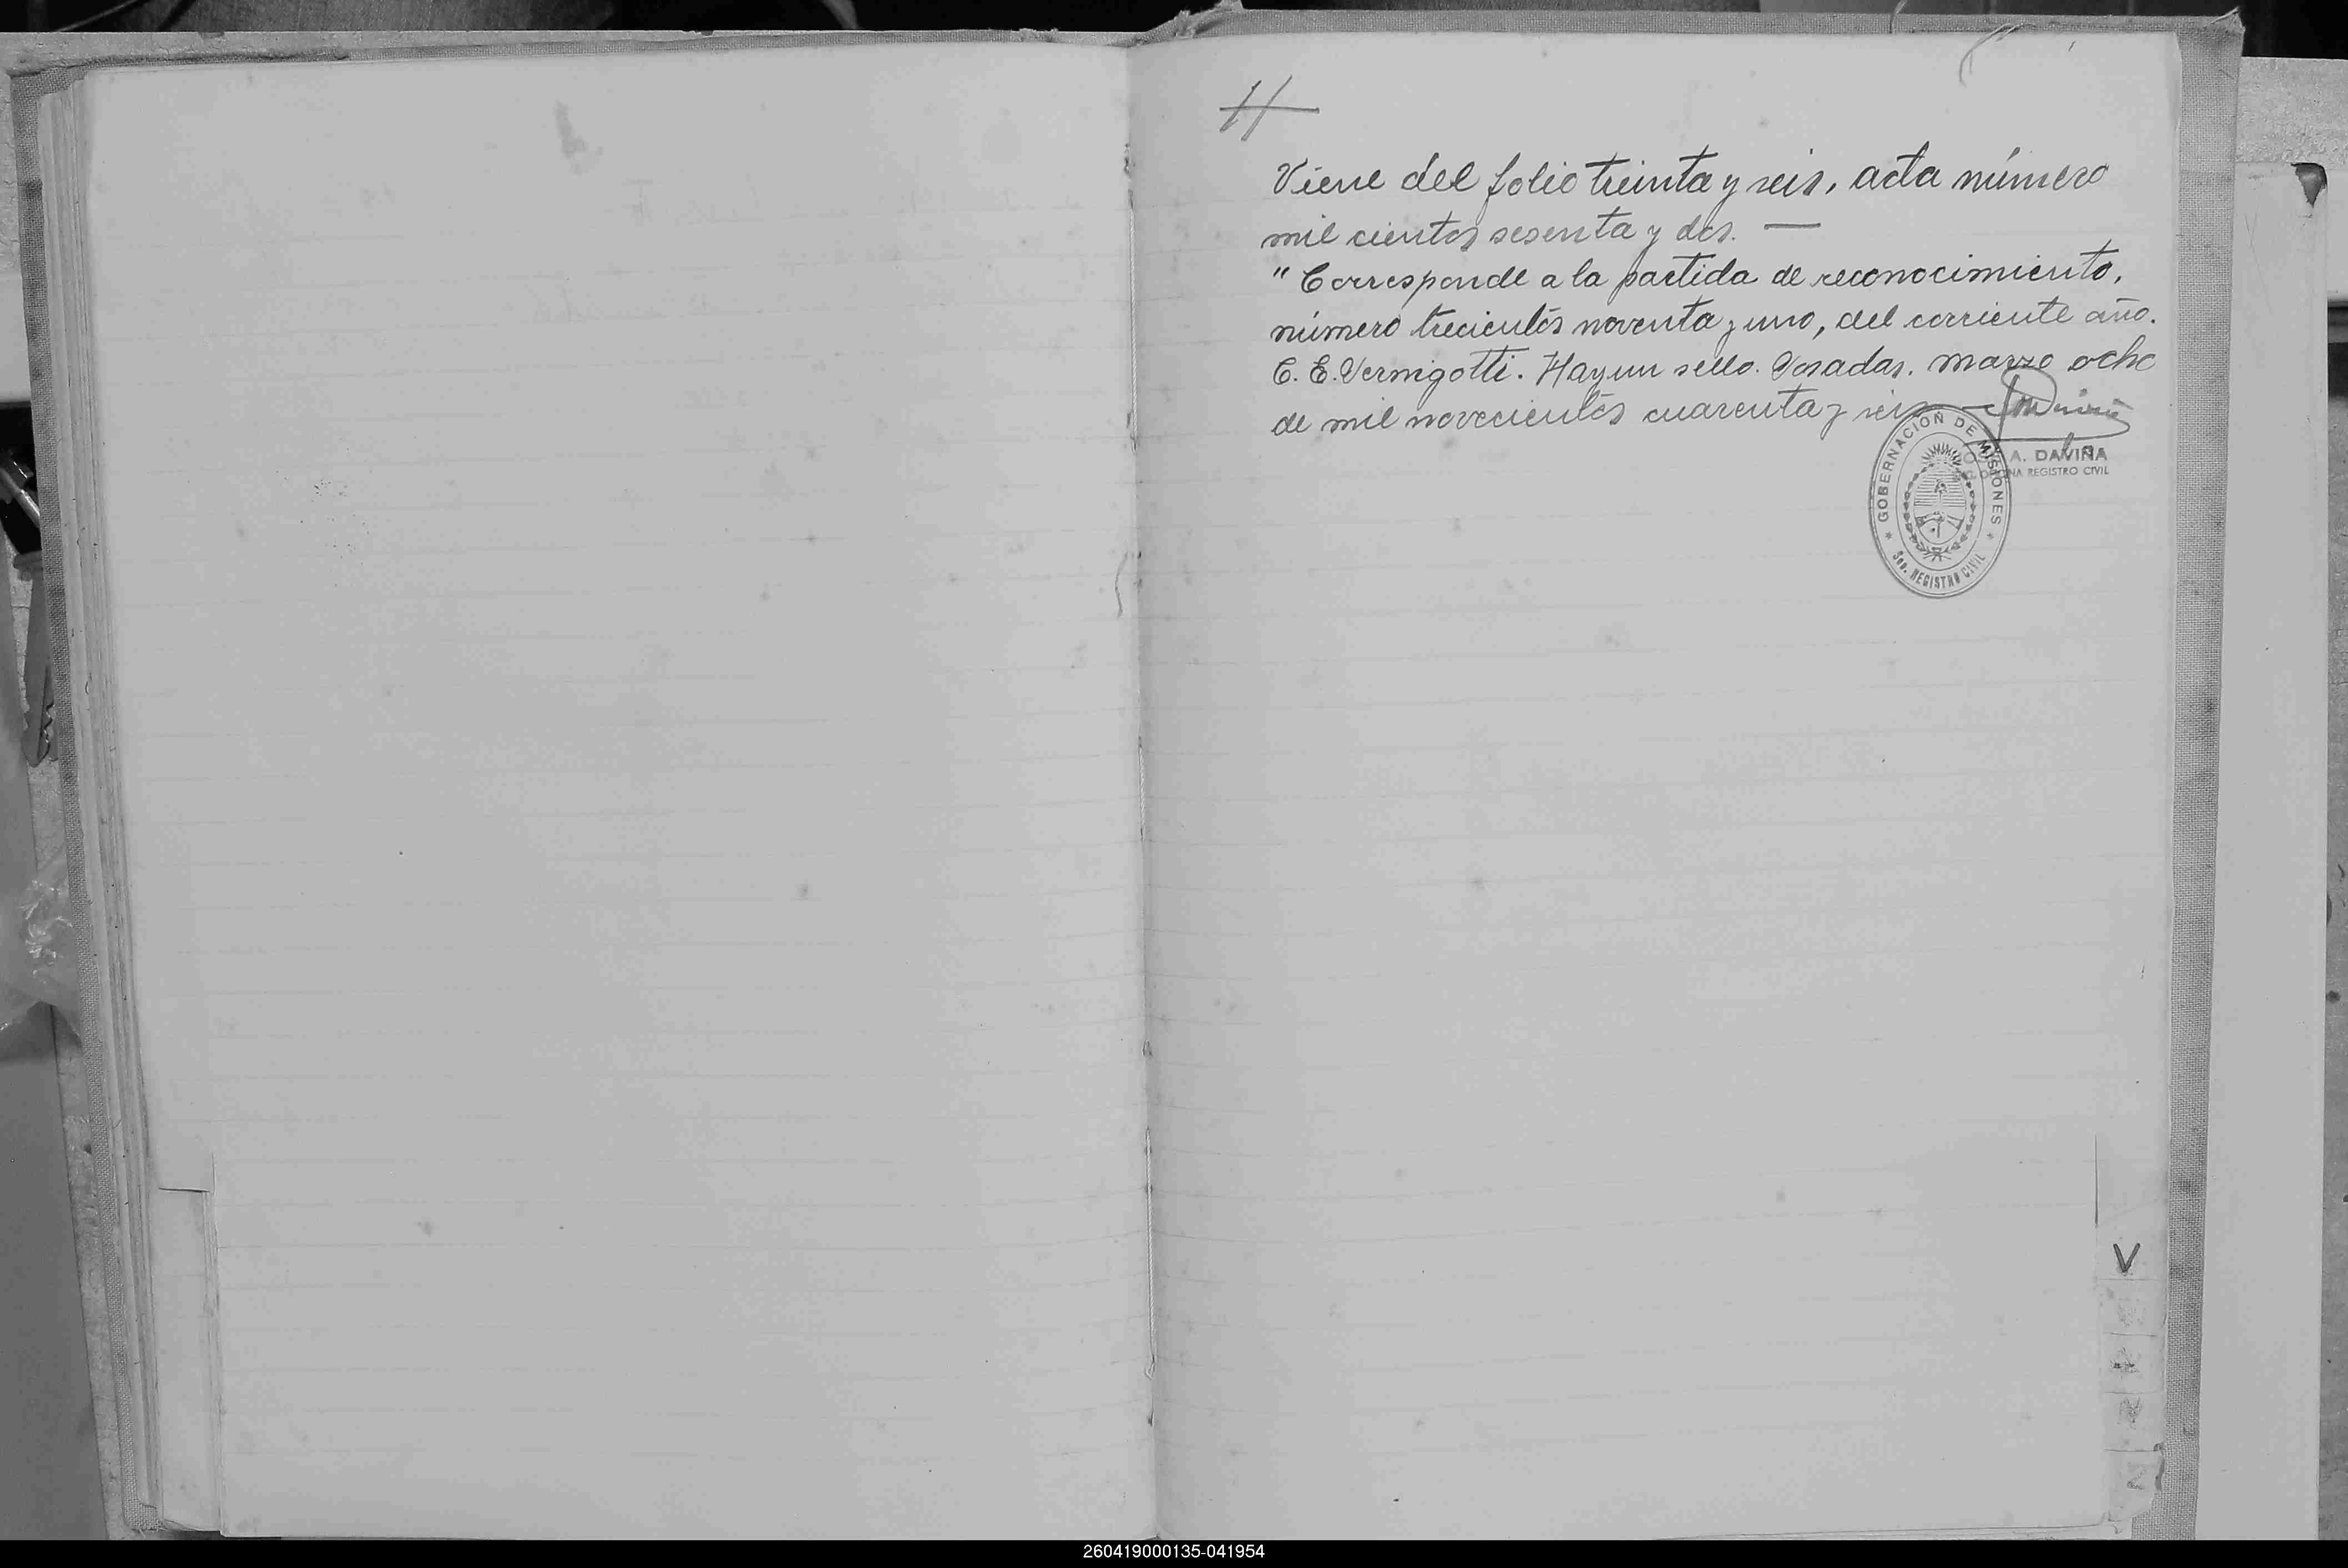 Viene del folio treinta y seis, acta número
mil cientos sesenta y dos. —
" Corresponde a la partida de reconocimiento,
número trecientos noventa y uno, del corriente año.
C. E. Vernigotti. Hay un sello. Posadas, marzo ocho
de mil novecientos cuarenta y seis —
A. DAVIÑA
OFICINA REGISTRO CIVIL
GOBERNACIÓN DE MISIONES
REGISTRO CIVIL
V
R
N
260419000135-041954